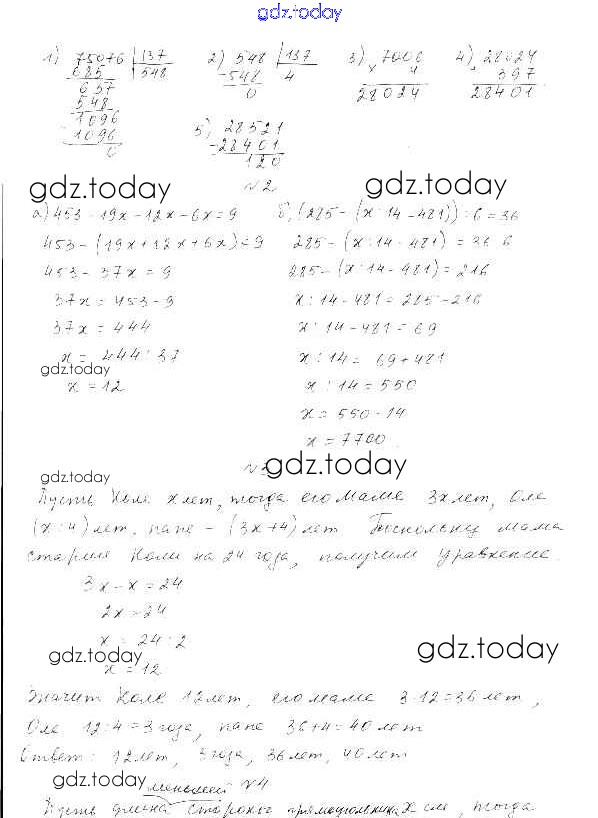 gdz.today
1) 75076 | 137 2) 548 | 137 3) 7006 4) 28024
685 548 -548 4 × 4 397
657 0 28024 28401
548
1096 5) 28521
1096 -28401
0 120
gdz.today gdz.today
№2
а) 453-19x-12x-6x=9 б) (285-(x:14-481)):6=36
453-(19x+12x+6x)=9 285-(x:14-481)=36·6
453-37x=9 285-(x:14-481)=216
37x=453-9 x:14-481=285-216
37x=444 x:14-481=69
x=444:37 x:14=69+481
gdz.today
x=12 x:14=550
x=550·14
x=7700
gdz.today №3 gdz.today
Пусть Коле x лет, тогда его маме 3x лет, Оле
(x:4) лет, папе - (3x+4) лет Поскольку мама
старше Коли на 24 года, получим уравнение.
3x-x=24
2x=24
x=24:2
gdz.today gdz.today
x=12
Значит Коле 12 лет, его маме 3·12=36 лет,
Оле 12:4=3 года, папе 36+4=40 лет
Ответ: 12 лет, 3 года, 36 лет, 40 лет
gdz.today меньшей №4
Пусть длина стороны прямоугольника x см, тогда